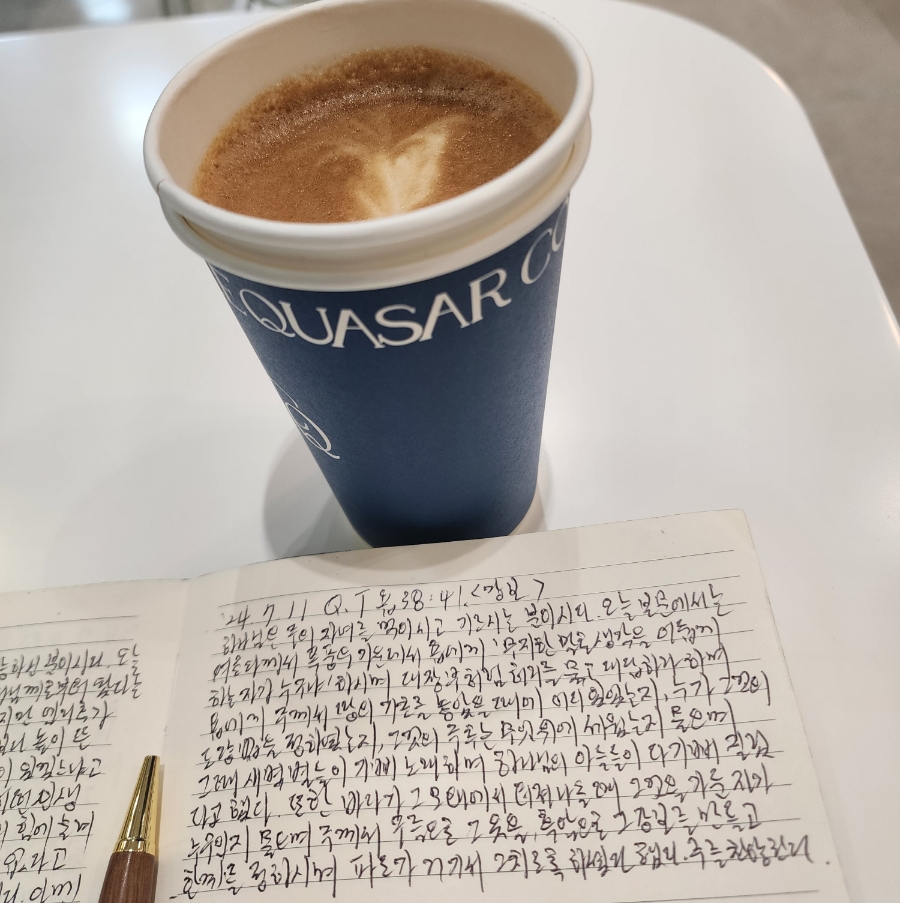 QUASAR CO
Q
'24. 7. 11 Q.T 욥38:41.
하나님은 우리 자녀를 먹이시고 기르시는 분이시다. 오늘 본문에서는
여호와께서 폭풍우 가운데에서 욥에게 '무지한 말로 생각을 어둡게
하는 자가 누구냐' 하시며 대장부처럼 허리를 묶고 대답하라 하며
욥에게 주께서 땅의 기초를 놓았을 때에 어디 있었는지, 누가 그것의
도량법을 정하였는지, 그것의 주추는 무엇 위에 세웠는지 물으며
그때 새벽 별들이 기뻐 노래하며 하나님의 아들들이 다 기뻐 질렀
다고 했다. 또한 바다가 그 모태에서 터져 나올 때 그것을 가둔 자가
누구인지 물으며 주께서 구름으로 그 옷을, 흑암으로 그 강보를 만들고
한계를 정하시며 파도가 거기서 그치도록 하셨다 했다. 주를 찬양한다.
하신 분이시다. 오늘
엎드려
높이 뜬
인생
힘에
요.라고